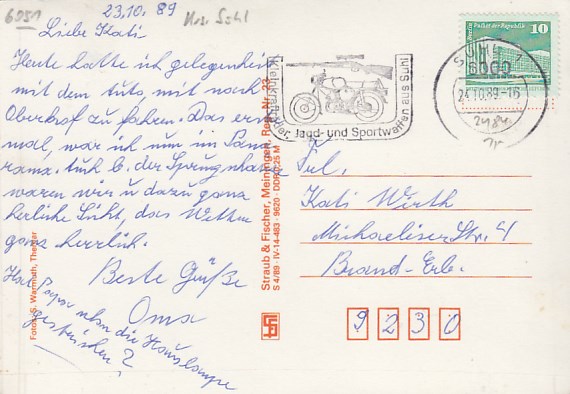 6051
23.10.89
Krs. Suhl
Liebe Kati
Heute hatte ich gelegenheit
mit dem Auto, mit nach
Oberhof zu fahren. Das erste
mal, war ich nun im Pano
rama. Auch b. der Sprungschanze
waren wir u dazu ganz
herliche Sicht, das Wetter
ganz herrlich.
Beste Grüße
Oma
Hat Papa schon die
gestrichen?
Fotos: S. Warmuth, Themar
Straub & Fischer, Meiningen, Reg.-Nr. 23
S 4/89 IV-14-483 9620 DDR 0,25 M
Kleinkrafträder, Jagd- und Sportwaffen aus Suhl
Berlin, Palast der Republik
10
DDR
SUHL 1
6000
24.10.89-16
Frl.
Kati Wirth
Michaeliser Str. 4
Brand-Erb.
9230